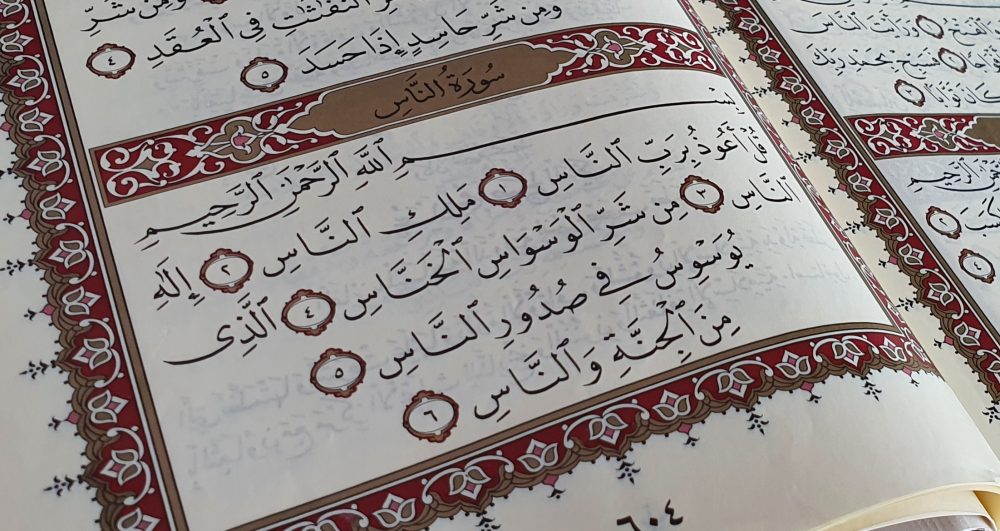 ٱلنَّفَّٰثَٰتِ فِى ٱلْعُقَدِ ٤
وَمِن شَرِّ حَاسِدٍ إِذَا حَسَدَ ٥
سُورَةُ النَّاسِ
بِسْمِ ٱللَّهِ ٱلرَّحْمَٰنِ ٱلرَّحِيمِ
قُلْ أَعُوذُ بِرَبِّ ٱلنَّاسِ ١ مَلِكِ ٱلنَّاسِ ٢ إِلَٰهِ
ٱلنَّاسِ ٣ مِن شَرِّ ٱلْوَسْوَاسِ ٱلْخَنَّاسِ ٤ ٱلَّذِى
يُوَسْوِسُ فِى صُدُورِ ٱلنَّاسِ ٥
مِنَ ٱلْجِنَّةِ وَٱلنَّاسِ ٦
٦٠٤
وَرَأَيْتَ ٱلنَّاسَ
فَسَبِّحْ بِحَمْدِ رَبِّكَ
كَانَ تَوَّابًا
ٱلرَّحِيمِ